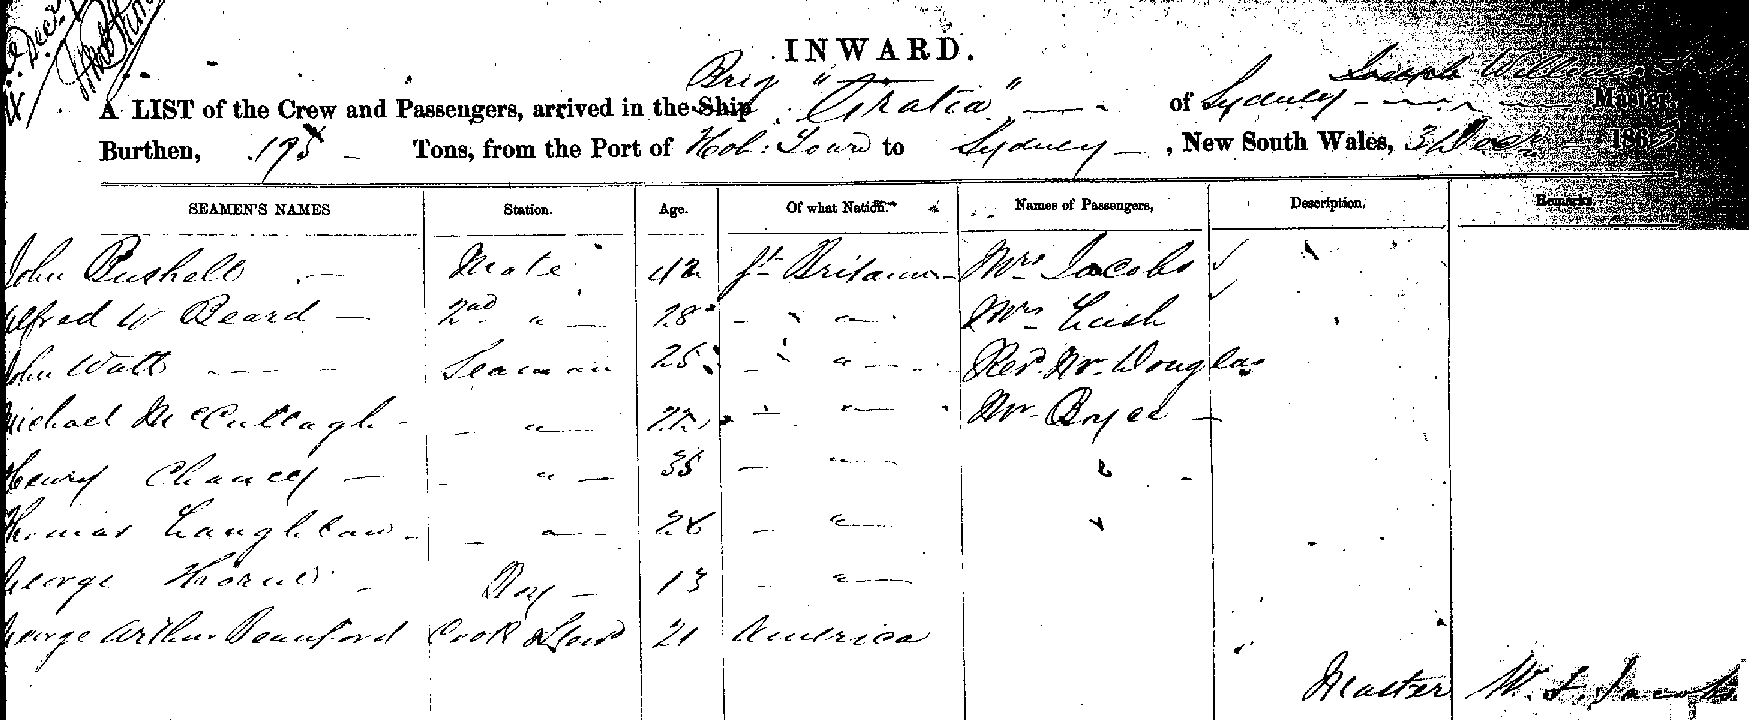 Decr
INWARD.
Brig Joseph William
A LIST of the Crew and Passengers, arrived in the Ship "Gratia" of Sydney Master,
Burthen, 195 Tons, from the Port of Hob: Town to Sydney, New South Wales, 3 Decr 186
SEAMEN'S NAMES Station. Age. Of what Nation. Names of Passengers, Description, Remarks
John Bushell Mate 42 Gt Britain Mrs Jacobs
Alfred W Beard 2nd " 28 " " Mrs Leish
John Watt Seaman 25 " " Revd. Mr. Douglas
Michael McCullagh " 22 " " Mr Bryce
Henry Chancey " 35 "
Thomas Laughlan " 26 "
George Thorne Boy 13 "
George Arthur Beauford Cook & Stewd 21 America
Master W. F. Jacobs